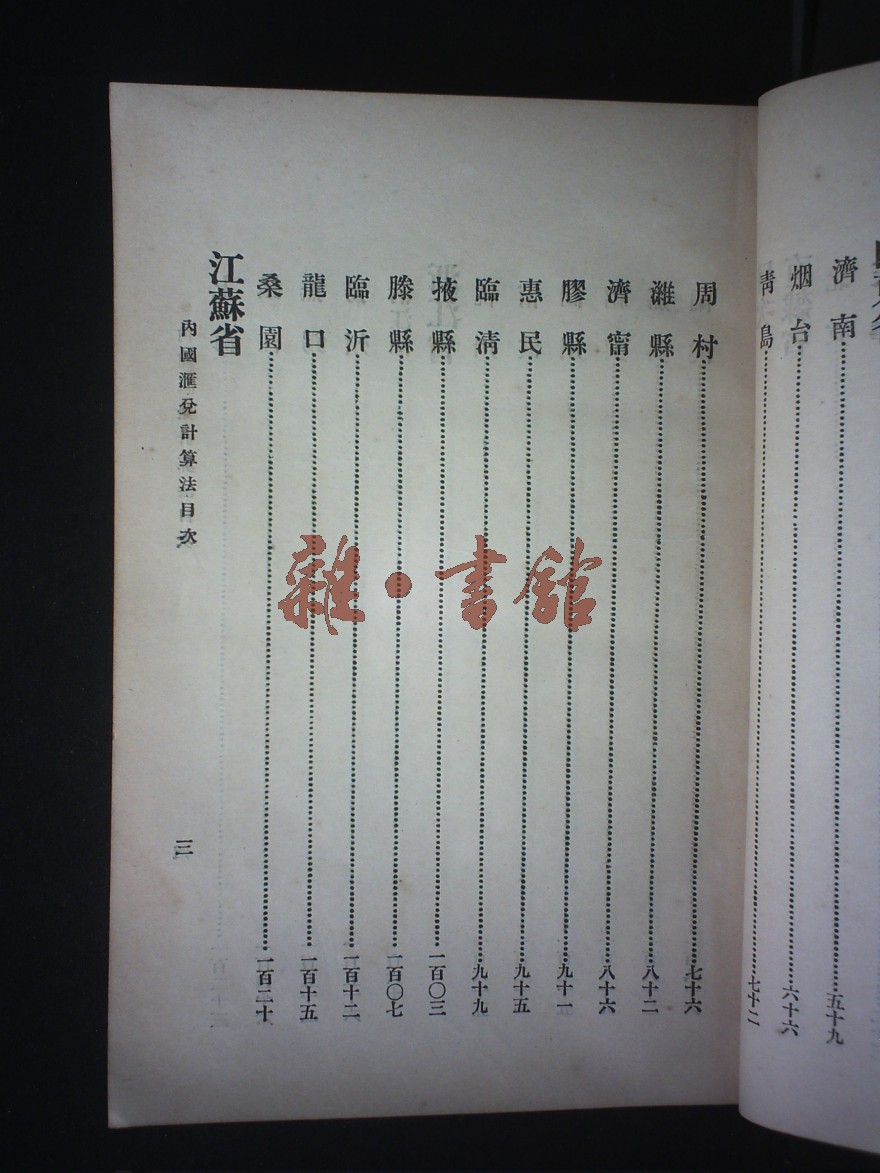 濟南 五十九
烟台 六十六
靑島 七十二
周村 七十六
濰縣 八十二
濟甯 八十六
膠縣 九十一
惠民 九十五
臨淸 九十九
掖縣 一百〇三
滕縣 一百〇七
臨沂 一百十二
龍口 一百十五
桑園 一百二十
江蘇省
內國滙兌計算法目次
三
雜·書館